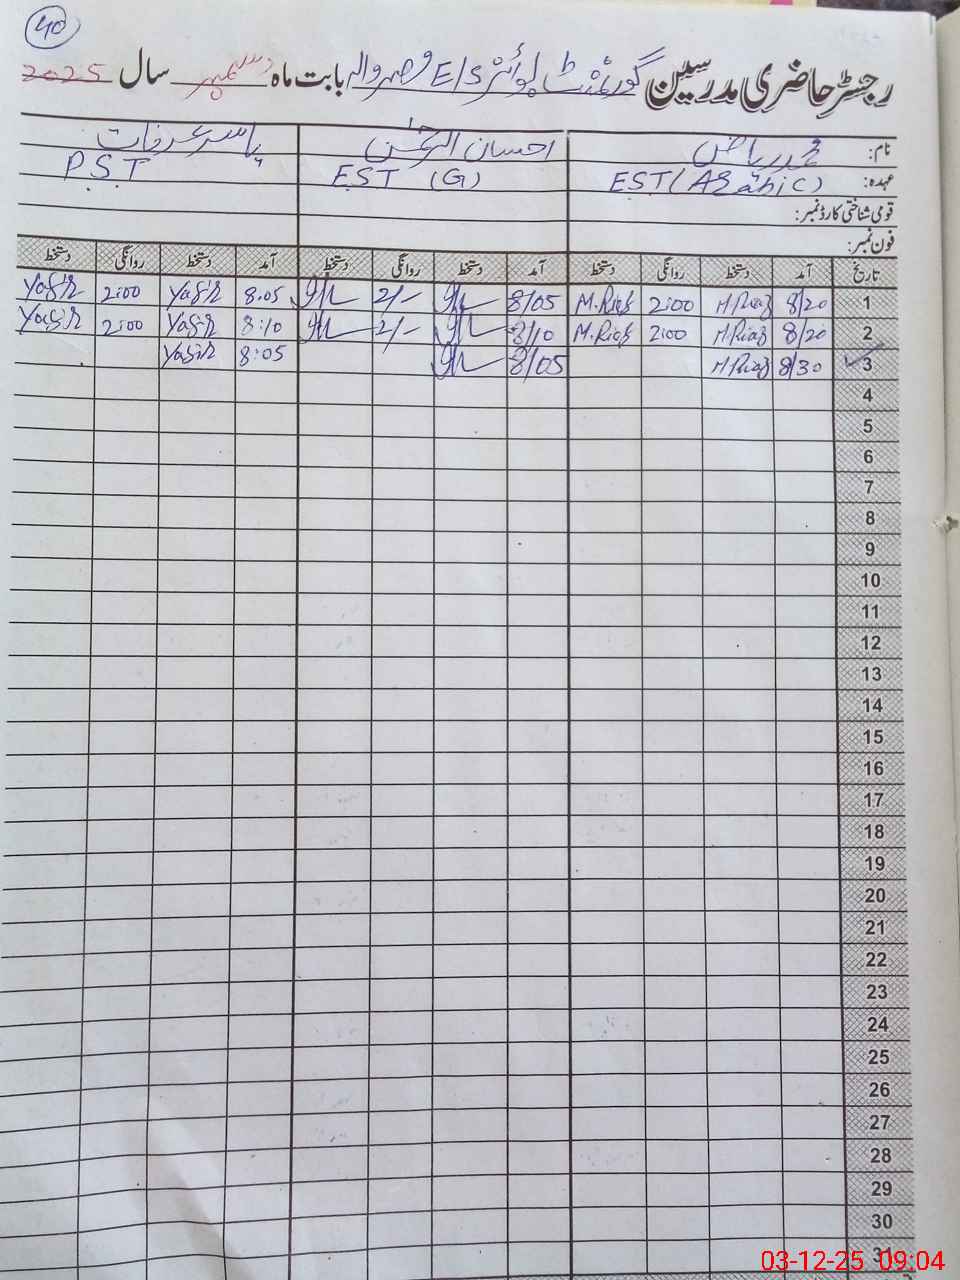 40
رجسٹر حاضری مدرسین گورنمنٹ بوائز E/S بابت ماہ دسمبر سال 2025
نام: محمد ریاض احسان الرحمن یاسر عرفات
عہدہ: EST (Arabic) EST (G) PST
قومی شناختی کارڈ نمبر:
فون نمبر:
تاریخ آمد دستخط روانگی دستخط آمد دستخط روانگی دستخط آمد دستخط روانگی دستخط
1 8/20 M.Riaz 2:00 M.Riaz 8/05 2/- 8.05 Yasir 2:00 Yasir
2 8/20 M.Riaz 2:00 M.Riaz 8/10 2/- 8:10 Yasir 2:00 Yasir
3 8/30 M.Riaz 8/05 8:05 Yasir
4
5
6
7
8
9
10
11
12
13
14
15
16
17
18
19
20
21
22
23
24
25
26
27
28
29
30
31
03-12-25 09:04